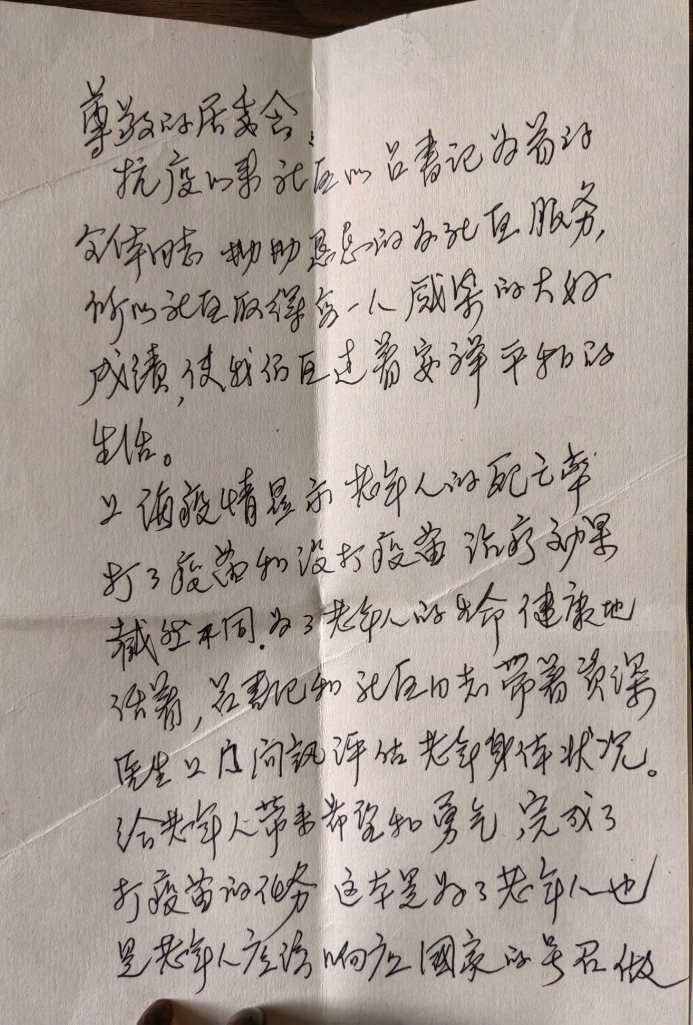 尊敬的居委会：
抗疫以来社区以吕书记为首的
全体同志 勤勤恳恳的为社区服务，
所以社区取得零一人感染的大好
成绩，使我们区过着安详平和的
生活。
上海疫情显示 老年人的死亡率
打了疫苗和没打疫苗 治疗效果
截然不同．为了老年人的生命 健康地
活着，吕书记和社区同志带着资深
医生上门问讯评估老年身体状况。
给老年人带来希望和勇气，完成了
打疫苗的任务 这本是为了老年人也
是老年人应该响应國家的号召做